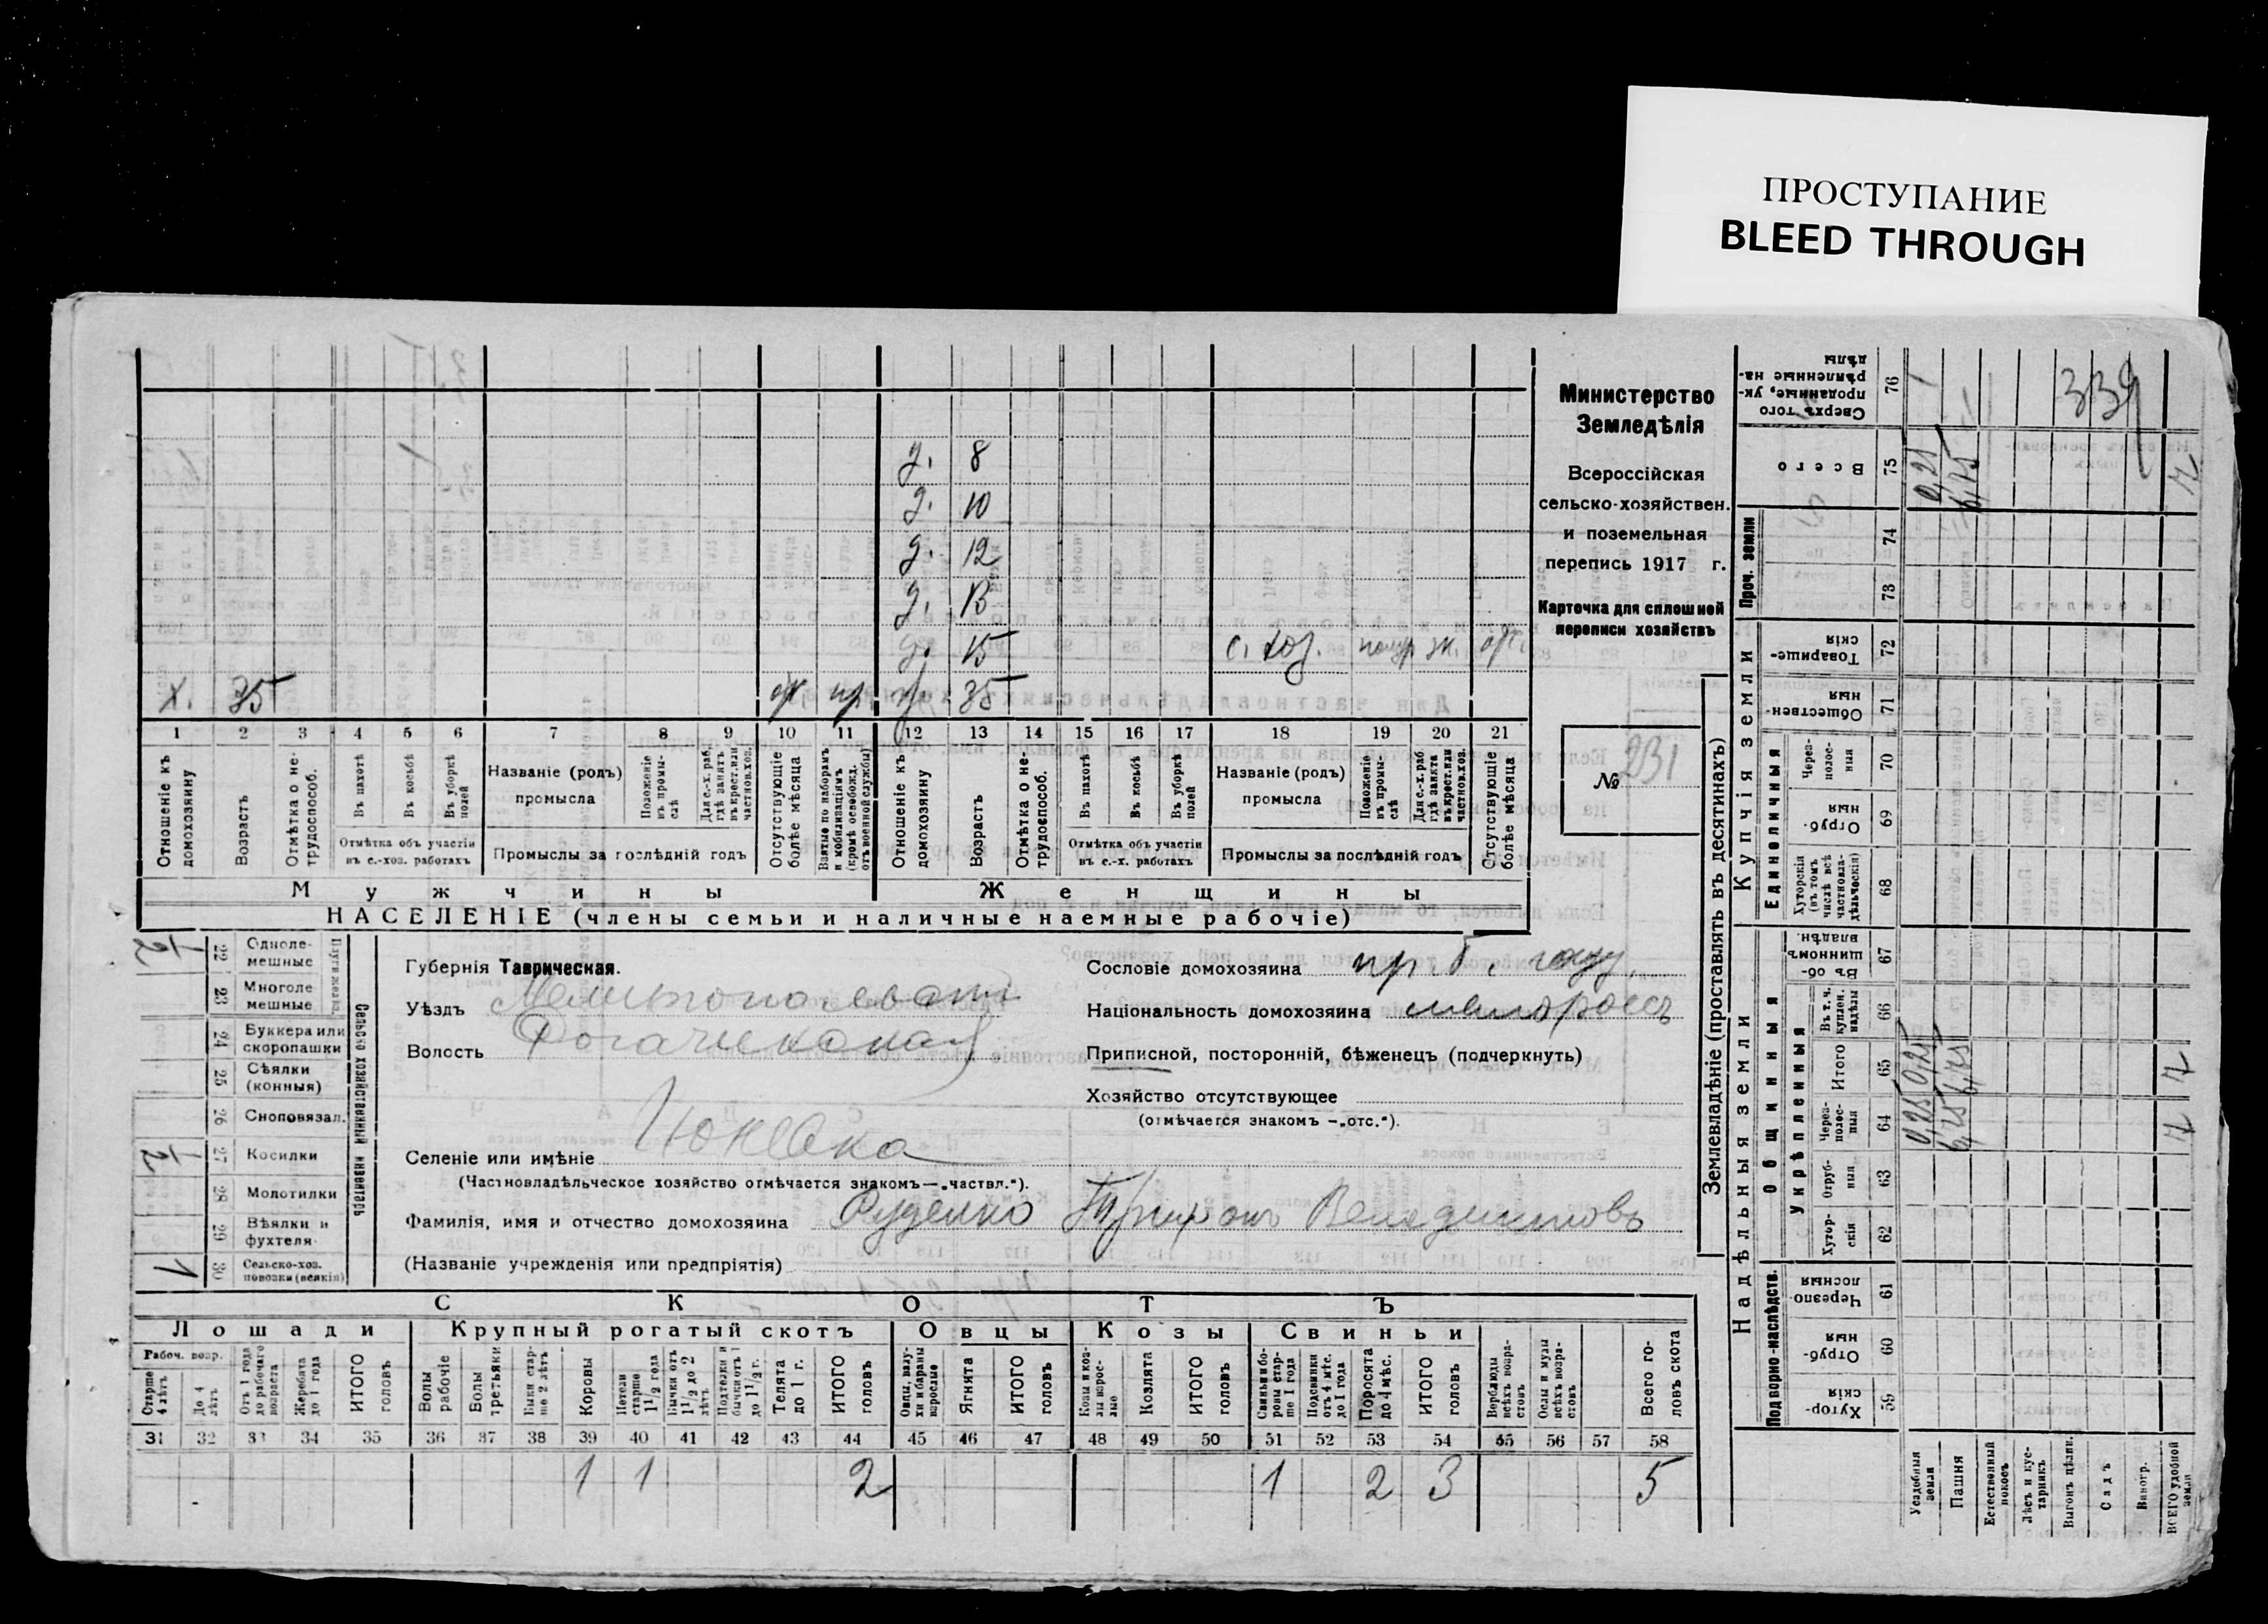 ПРОСТУПАНИЕ
BLEED THROUGH
Министерство
Земледѣлія
Всероссійская
сельско-хозяйствен.
и поземельная
перепись 1917 г.
Карточка для сплошной
переписи хозяйствъ
№ 231
д. 8
д. 10
д. 12
д. 13
д. 15 с. хоз.
х. 35 35
1 2 3 4 5 6 7 8 9 10 11 12 13 14 15 16 17 18 19 20 21
Отношеніе къ домохозяину
Возрастъ
Отмѣтка о не-трудоспособ.
Въ пахотѣ
Въ косьбѣ
Въ уборкѣ полей
Отмѣтка объ участіи въ с.-хоз. работахъ
Названіе (родъ) промысла
Положеніе въ промы-слѣ
Для с.-х. раб. гдѣ занятъ въ крест. или частнов. хоз.
Промыслы за послѣдній годъ
Отсутствующіе болѣе мѣсяца
Взятые по наборамъ и мобилизаціямъ (кромѣ освобожд. отъ военной службы)
Отношеніе къ домохозяину
Возрастъ
Отмѣтка о не-трудоспособ.
Въ пахотѣ
Въ косьбѣ
Въ уборкѣ полей
Отмѣтка объ участіи въ с.-х. работахъ
Названіе (родъ) промысла
Положеніе въ промы-слѣ
Для с.-х. раб. гдѣ занята въ крест. или частнов. хоз.
Промыслы за послѣдній годъ
Отсутствующіе болѣе мѣсяца
Мужчины Женщины
НАСЕЛЕНІЕ (члены семьи и наличные наемные рабочіе)
Сельско хозяйственный инвентарь
22 Одноле-мешные
23 Многоле мешные
24 Буккера или скоропашки
25 Сѣялки (конныя)
26 Сноповязал.
27 Косилки
28 Молотилки
29 Вѣялки и фухтеля
1 30 Сельско-хоз. повозки (всякія)
Губернія Таврическая.
Уѣздъ Мелитопольскій
Волость Рогачикская
Селеніе или имѣніе
(Частновладѣльческое хозяйство отмѣчается знакомъ—„частвл.“).
Фамилія, имя и отчество домохозяина Руденко Трифонъ Венедиктовъ
(Названіе учрежденія или предпріятія)
Сословіе домохозяина
Національность домохозяина малороссъ
Приписной, посторонній, бѣженецъ (подчеркнуть)
Хозяйство отсутствующее
(отмѣчается знакомъ —„отс.“).
СКОТЪ
Лошади Крупный рогатый скотъ Овцы Козы Свиньи
Рабоч. возр.
Старше 4 лѣтъ
До 4 лѣтъ
Отъ 1 года до рабочаго возраста
Жеребята до 1 года
ИТОГО головъ
Волы рабочіе
Волы третьяки
Быки стар-ше 2 лѣтъ
Коровы
Нетели старше 1 1/2 года
Бычки отъ 1 1/2 до 2 лѣтъ
Подтелки и бычки отъ 1 до 1 1/2 г.
Телята до 1 г.
ИТОГО головъ
Овцы, валу-хи и бараны взрослые
Ягнята
ИТОГО головъ
Козы и коз-лы взрос-лые
Козлята
ИТОГО головъ
Свиньи и бо-ровы стар-ше 1 года
Подсвинки отъ 4 мѣс. до 1 года
Поросята до 4 мѣс.
ИТОГО головъ
Верблюды всѣхъ возра-стовъ
Ослы и мулы всѣхъ возра-стовъ
Всего го-ловъ скота
31 32 33 34 35 36 37 38 39 40 41 42 43 44 45 46 47 48 49 50 51 52 53 54 55 56 57 58
1 1 2 1 2 3 5
Землевладѣніе (проставлять въ десятинахъ)
Надѣльныя земли Купчія земли Проч. земли
Подворно-наслѣдств. Общинныя Единоличныя
Укрѣпленныя
59 Хутор-скія
60 Отруб-ныя
61 Черезпо-лосныя
62 Хутор-скія
63 Отруб-ныя
64 Через-полос-ныя
65 Итого
66 Въ т. ч. куплен. надѣлы
67 Въ об-щинномъ владѣн.
68 Хуторскія (въ томъ числѣ всѣ частновла-дѣльческія)
69 Отруб-ныя
70 Через-полос-ныя
71 Обществен-ныя
72 Товарище-скія
73
74
75 Всего
76 Сверхъ того проданные, ук-рѣпленные на-дѣлы
Усадебныя земли 0,25 0,25 0,25
Пашня
Естественный покосъ
Лѣсъ и кус-тарникъ
Выгонъ цѣлин.
Садъ
Виногр.
ВСЕГО удобной земли
339